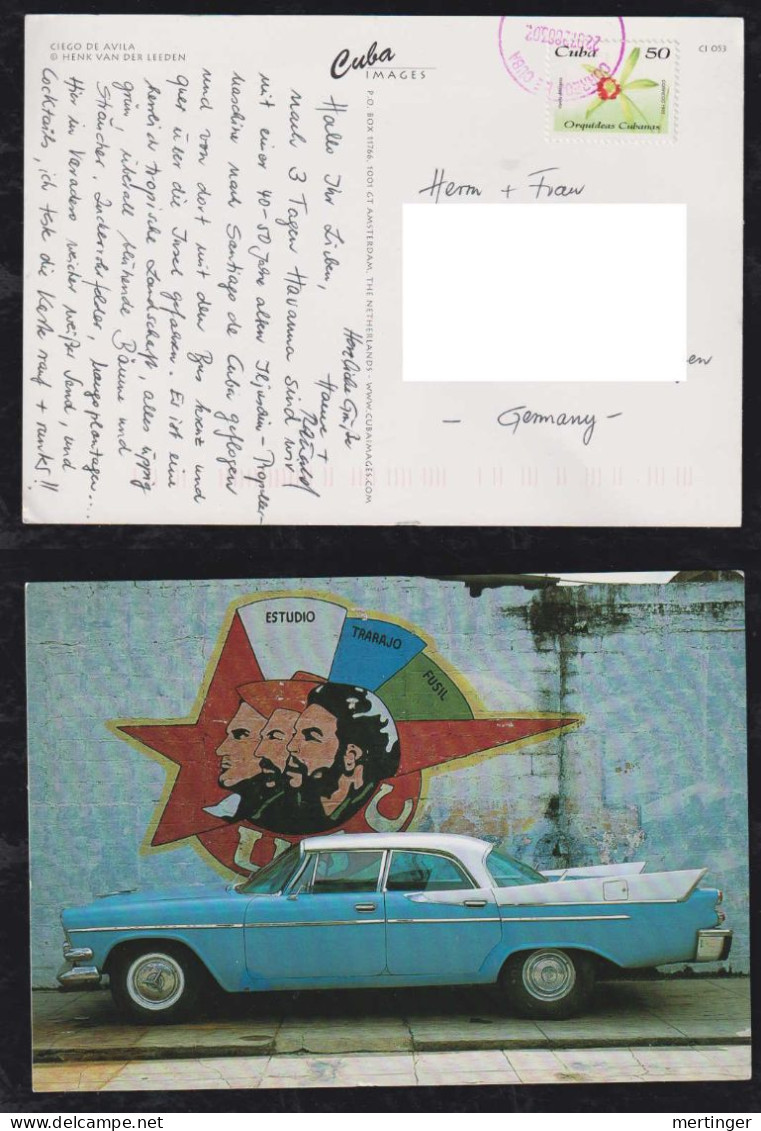 CIEGO DE AVILA
© HENK VAN DER LEEDEN
Cuba
IMAGES
CI 053
P.O. BOX 11766, 1001 GT AMSTERDAM, THE NETHERLANDS - WWW.CUBAIMAGES.COM
Cuba 50
Orquídeas Cubanas
CUBA
Hallo Ihr Lieben,
nach 3 Tagen Havanna sind wir
mit einer 40-50 Jahre alten Iljuschin-Propeller-
maschine nach Santiago de Cuba geflogen
und von dort mit dem Bus kreuz und
quer über die Insel gefahren. Es ist eine
herrlich tropische Landschaft, alles üppig
grün, überall blühende Bäume und
Sträucher, Zuckerrohrfelder, Mangoplantagen....
Hier in Varadero weicher weißer Sand, und
Cocktails, ich trink die Karte rauf + runter!!
Herzliche Grüße
Herrn + Frau
en
- Germany -
ESTUDIO
TRABAJO
FUSIL
UJC
mertinger